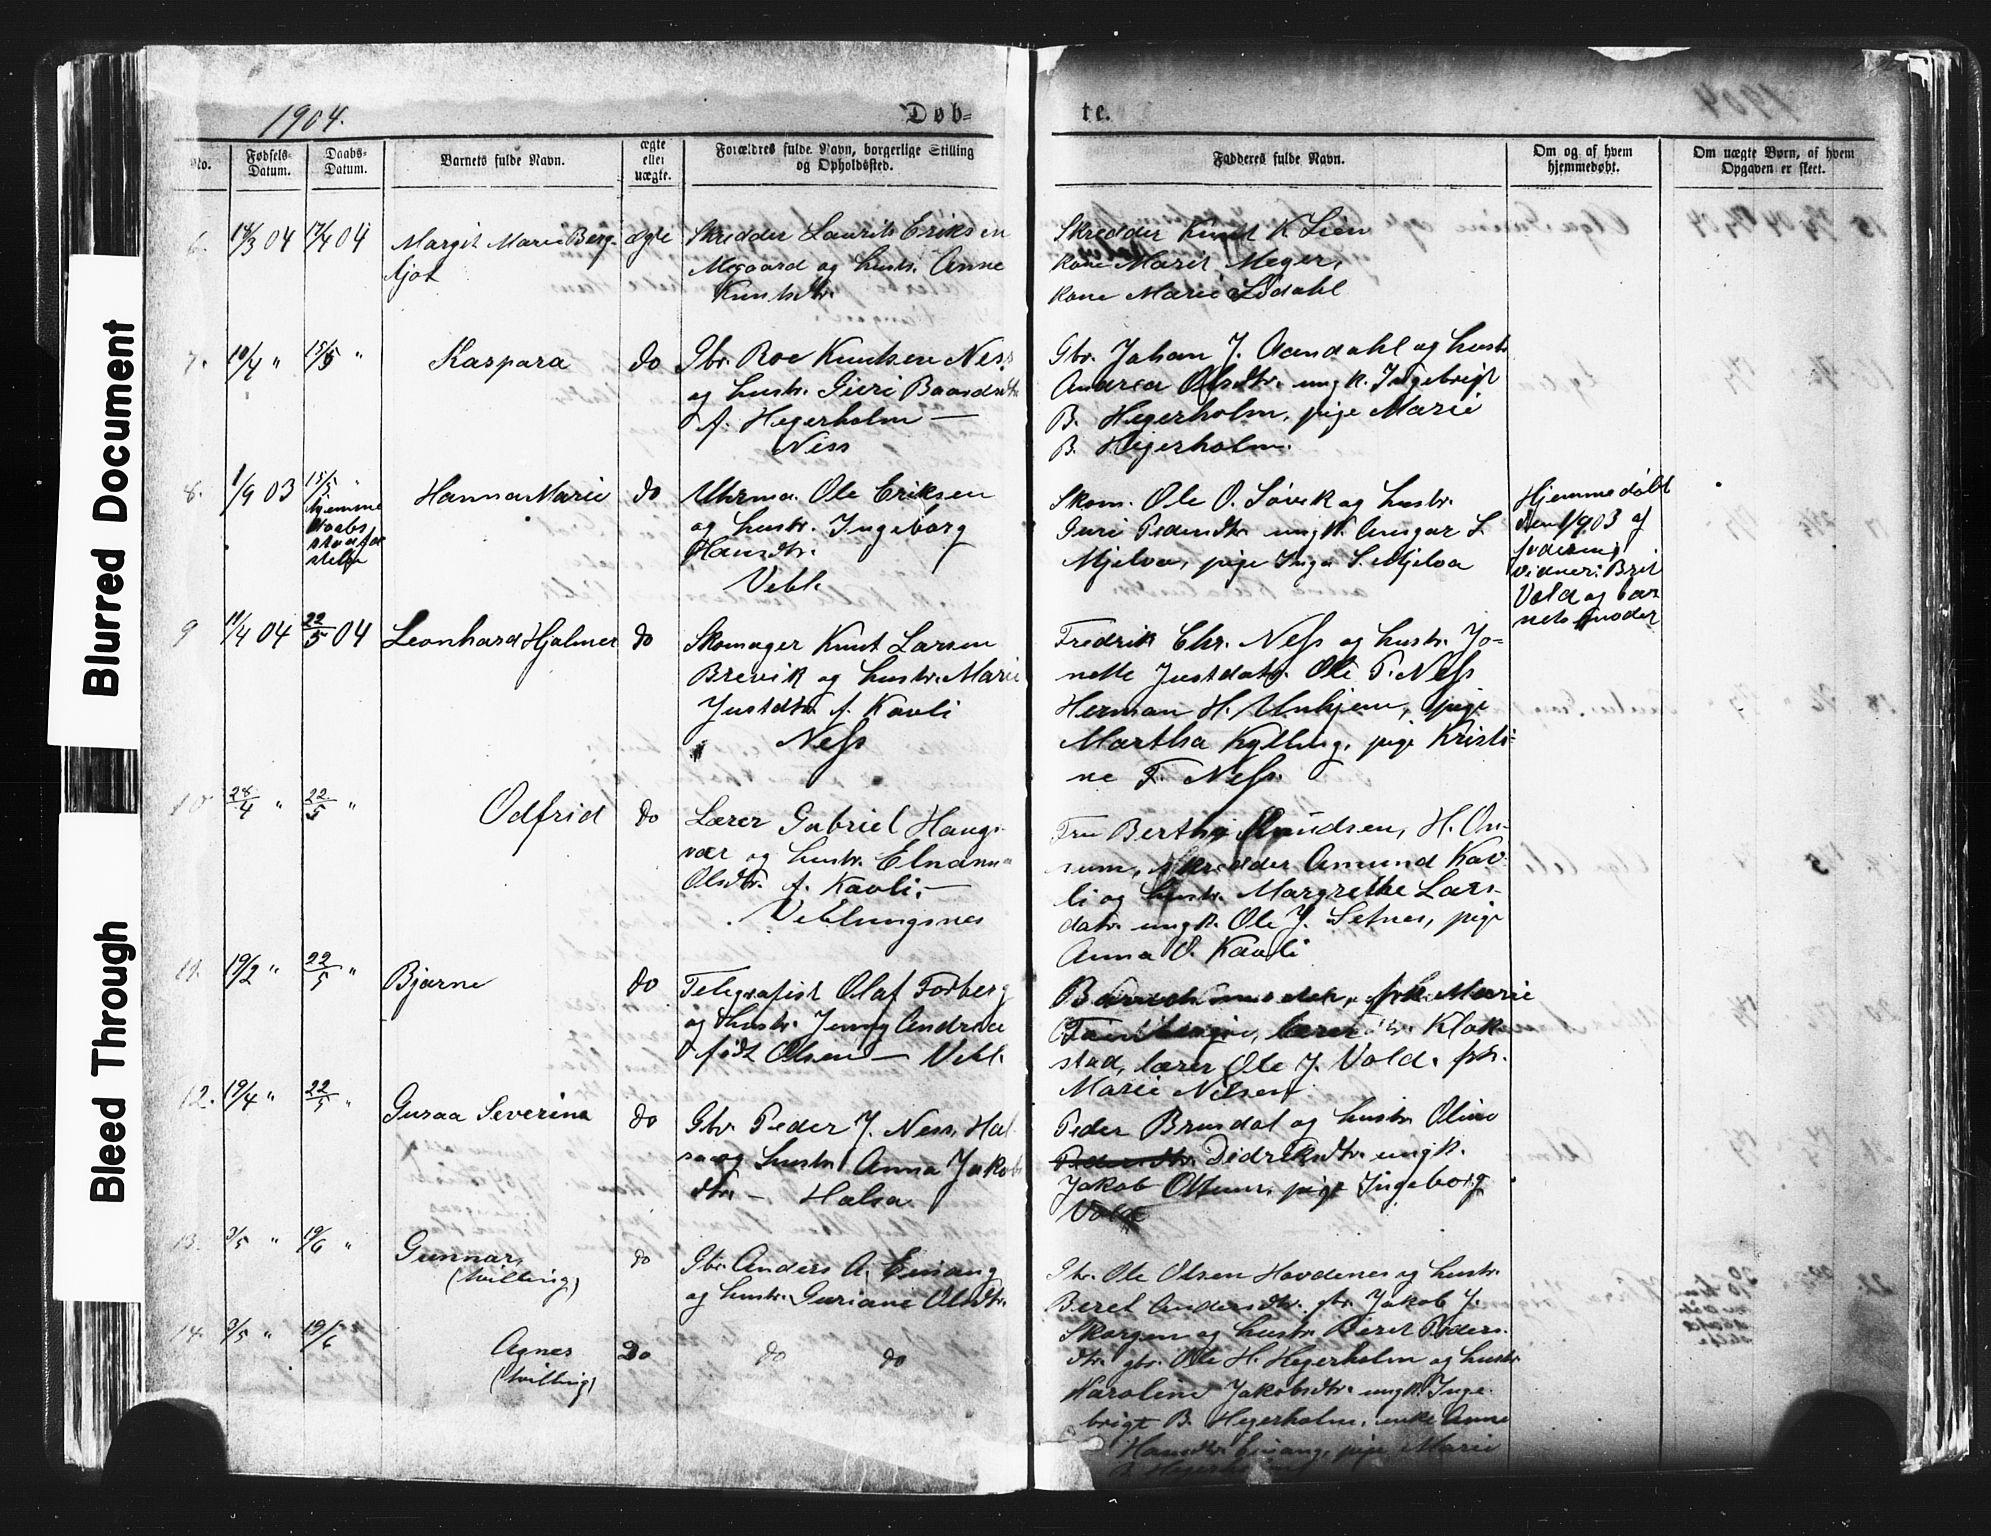 Blurred Document
Bleed Through
1904.
Døb=
te.
No.
Fødsels-Datum.
Daabs-Datum.
Barnets fulde Navn.
ægte eller uægte.
Forældres fulde Navn, borgerlige Stilling og Opholdssted.
Fadderes fulde Navn.
Om og af hvem hjemmedøbt.
Om uægte Børn, af hvem Opgaven er skeet.
6. 14/3 04 17/4 04 Margit Marie Berg- ægte Skrædder Laurits Eriksen
Mogaard og hustr. Anne
Knutsdtr.
Skrædder Knut K Lien
kone Marit Meger,
kone Marie Lødahl
7. 10/4 " 15/5 " Kaspara do Gbr. Roe Knutsen Ness
og hustr. Gjeri Baardsdtr
f. Hegerholm —
Ness
Gbr. Johan J. Aandahl og hustr
Andrea Olsdtr. ungk. Ingebrigt
B. Hegerholm, pige Marie
B. Hegerholm.
8. 1/9 03 15/5 " Hanna Marie do Uhrma. Ole Eriksen
hjemme
daabs
stadfæ
stelse
og hustr. Ingeborg
Hansdtr.
Vebl.
Skom. Ole O. Søvik og hustr.
Guri Pedersdtr. ungk. Ansgar L
Mjelva, pige Inga S. Mjelva
Hjemmedøbt
den 1/9 03 af
vidner: Brit
Vold og bar
nets moder
9 11/4 04 22/5 04 Leonhard Hjalmer do Skomager Knut Larsen
Brevik og hustr. Marie
Justdtr. f. Kavli
Ness
Fredrik Chr. Ness og hustr. Jo-
nette Justdatr. Ole T. Ness
Herman H. Unhjem, pige
Martha Kylling, pige Kristi-
ne F. Ness.
10 28/4 " 22/5 " Odfrid do Lærer Gabriel Haugs-
vær og hustr. Elnanna
Olsdtr. f. Kavli. —
Veblungsnes
Fru Bertha Knudsen, H. On-
sum, skrædder Amund Kav-
li og hustr. Margrethe Lars-
datr. ungk. Ole J. Setnes, pige
Anna O. Kavli
11. 19/2 " 22/5 " Bjarne do Telegrafist Olaf Forberg
og hustr. Jenny Andrea
født Olsen — Vebl.
Barnets moder, frk. Marie
lærer Kløk-
stad, lærer Ole J. Vold. frk.
Marie Nilsen
12. 19/4 " 22/5 " Guraa Severine do Gbr. Peder J. Ness, Hal-
sa og hustr. Anna Jakobs
dtr. — Halsa
Peder Brudal og hustr. Oline
Pedersdtr. Didriksdtr. ungk.
Jakob Ottesen, pige Ingeborg
Vold
13. 3/5 " 19/6 " Gunnar do Gbr. Anders A. Einang
(tvilling)
og hustr. Guriane Olsdtr.
Gbr. Ole Olsen Hovdenes og hustr.
Beret Andersdtr. gbr. Jakob J.
14. 3/5 " 19/6 Agnes Do do do
(tvilling)
Skorgen og hustr. Beret Peders-
dtr. gbr. Ole H. Hegerholm og hustr
Karoline Jakobsdtr. ungk. Inge-
brigt B. Hegerholm, enke Anne
Hansdtr. Einang, pige Marie
B. Hegerholm